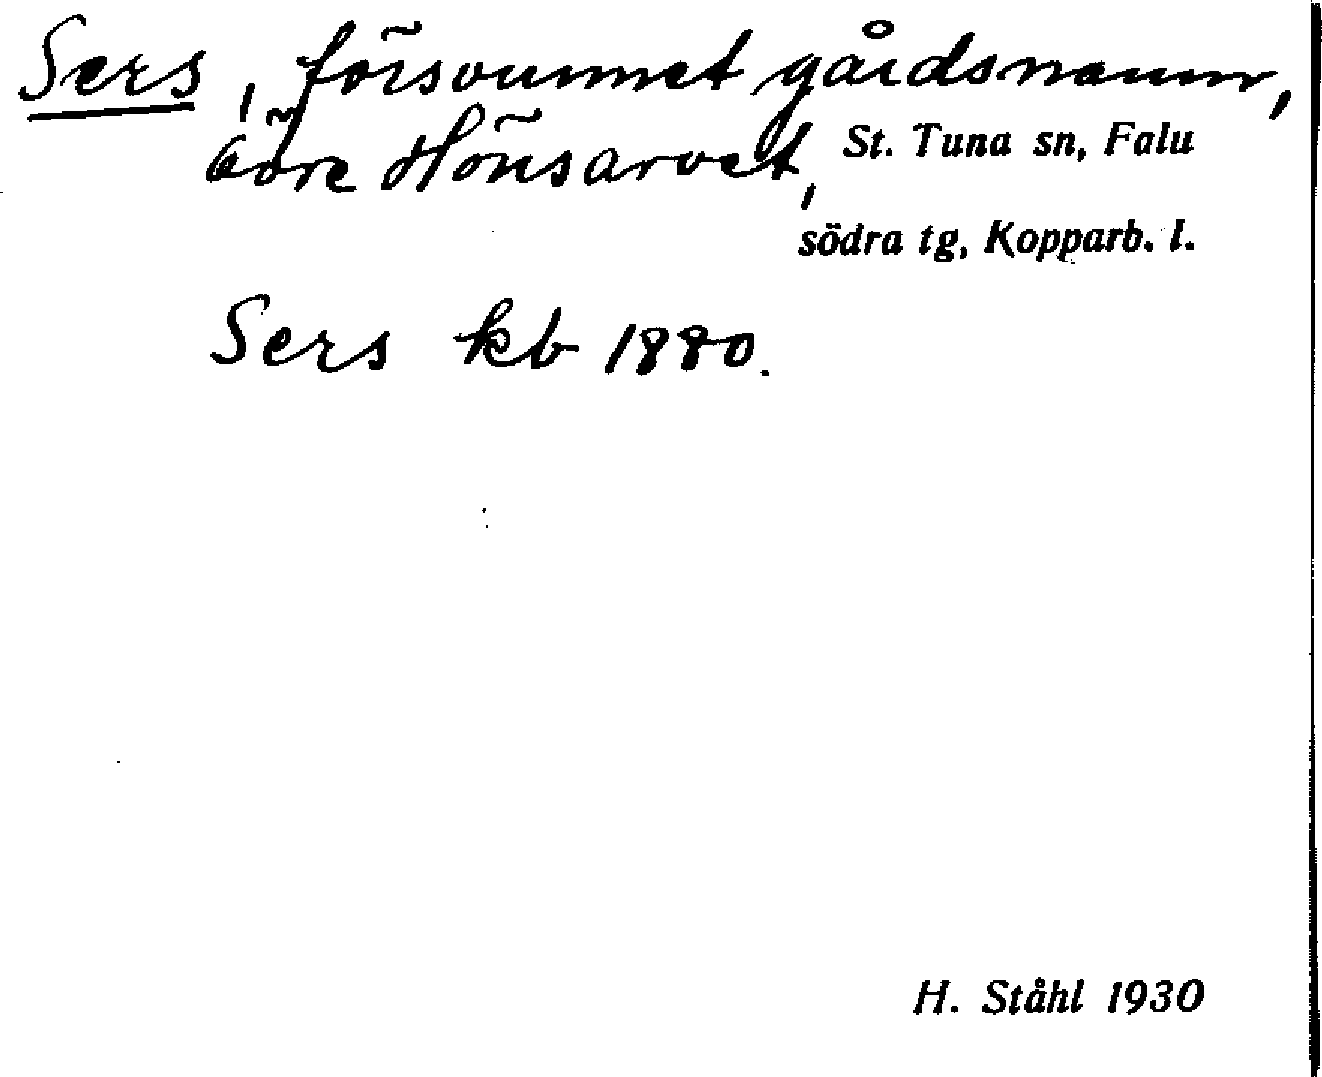 Sers, försvunnet gårdsnamn,
Övre Hönsarvet, St. Tuna sn, Falu
södra tg, Kopparb. l.
Sers kb 1880.
H. Ståhl 1930